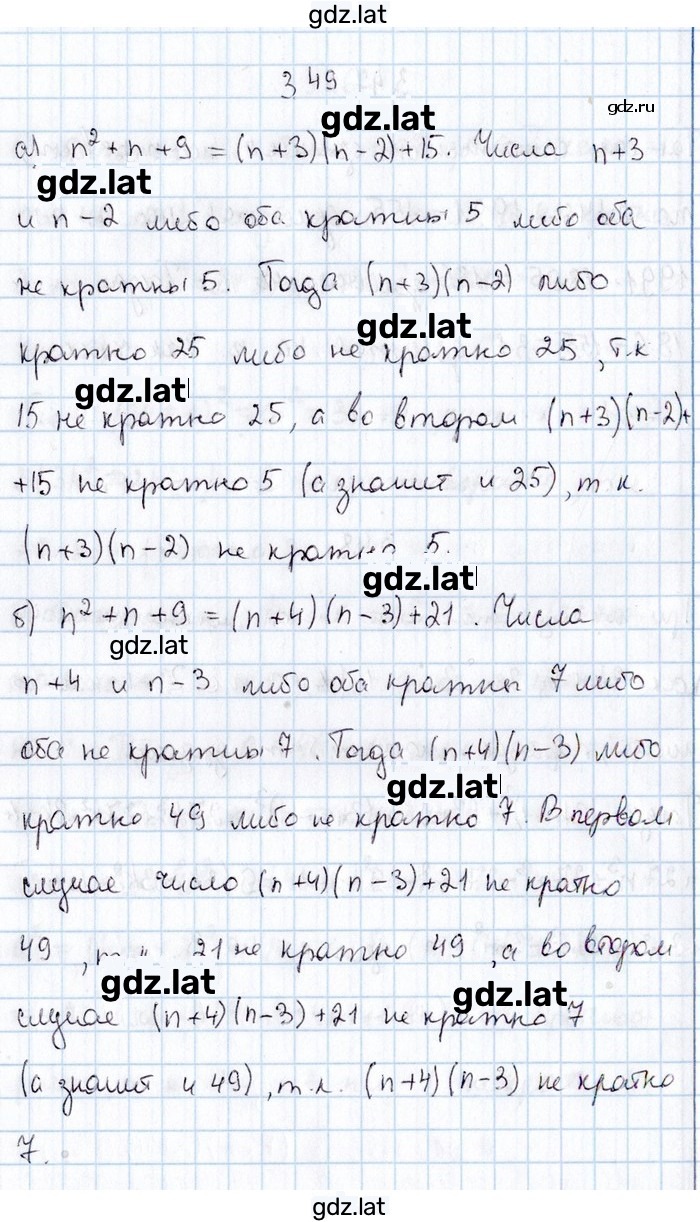 gdz.lat
349
gdz.ru
gdz.lat
а) n² + n + 9 = (n+3)(n-2)+15. Числа n+3
gdz.lat
и n-2 либо оба кратны 5 либо оба
не кратны 5. Тогда (n+3)(n-2) либо
gdz.lat
кратно 25 либо не кратно 25, т.к
gdz.lat
15 не кратно 25, а во втором (n+3)(n-2)+
+15 не кратно 5 (а значит и 25), т к.
(n+3)(n-2) не кратно 5.
gdz.lat
б) n² + n + 9 = (n+4)(n-3)+21. Числа
gdz.lat
n+4 и n-3 либо оба кратны 7 либо
оба не кратны 7. Тогда (n+4)(n-3) либо
gdz.lat
кратно 49 либо не кратно 7. В первом
случае число (n+4)(n-3)+21 не кратно
49, 21 не кратно 49, а во втором
gdz.lat
gdz.lat
случае (n+4)(n-3)+21 не кратно 7
(а значит и 49), т.к. (n+4)(n-3) не кратно
7.
gdz.lat